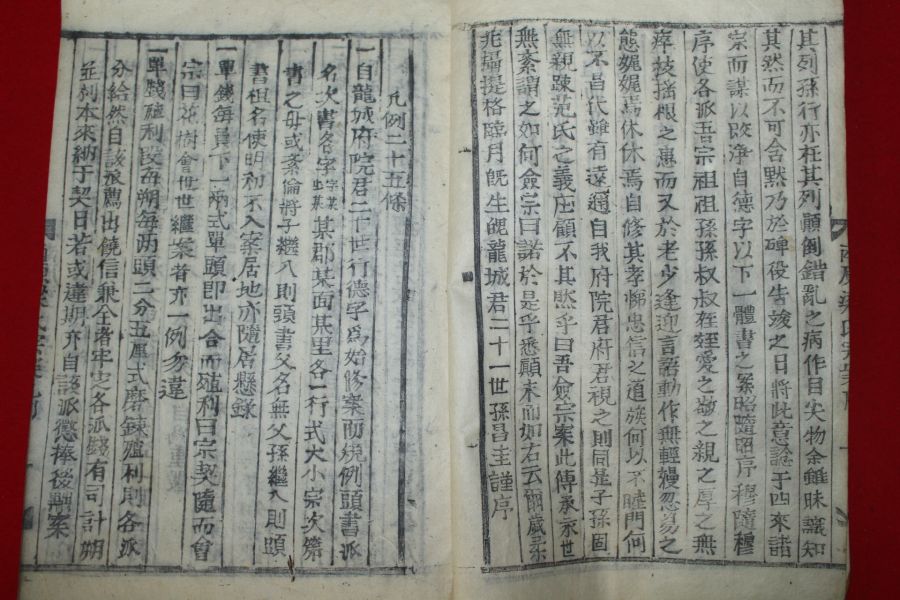 其列孫行亦在其列顚倒錯亂之病作目尖物余雖昧識知
其然而不可含默乃於碑役告竣之日將此意諗于四來諸
宗而謀以改淨自德字以下一體書之案昭隨昭序穆隨穆
序使各派吾宗祖祖孫孫叔叔侄侄愛之敬之親之厚之無
瘁枝搖根之患而又於老少逢迎言語動作無輕嫚忽易之
態娓娓焉休休焉自修其孝悌忠信之道族何以不睦門何
以不昌代雖有遠邇自我府院君府君視之則同是子孫固
無親疎范氏之義庄顧不其然乎曰吾僉宗案此傳承永世
無紊謂之如何僉宗曰諾於是乎悉顚末而如右云爾歲
兆攝提格臨月旣生魄龍城君二十一世孫昌圭謹序
凡例二十五條
一自龍城府院君二十世行德字爲始修案而規例頭書派
名次書各字某某某郡某面某里各一行式大小宗次第
書之毋或紊倫將子繼入則頭書父名無父孫繼入則頭
書祖名使明和不入案居地亦隨居懸錄
一單錢每員下一兩式單頭卽出合而殖利曰宗契隨而會
宗曰花樹會世世繼案者亦一例勿違
一單錢殖利段每朔每兩頭二分五厘式磨鍊殖利則各派
分給然自該派薦出饒信兼全者牢定各派錢有司計朔
並利本來納于契日若或違期亦自該派懲捧後割案